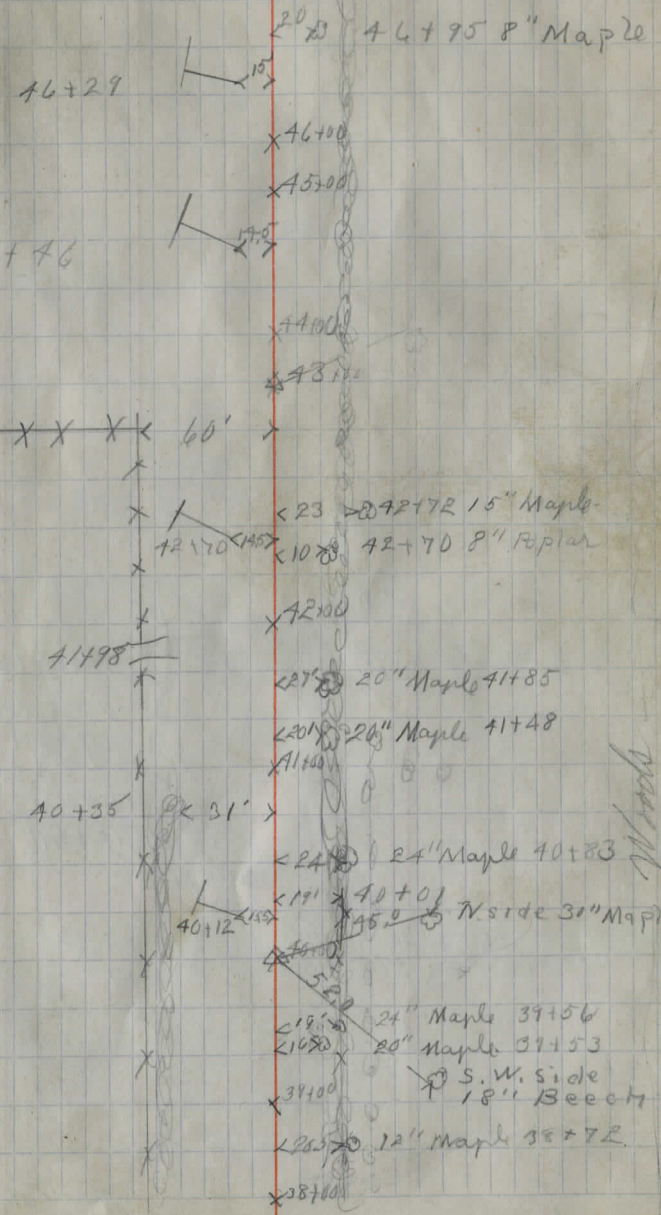 20 46+95 8" Maple
46+29 15
46+00
45+00
+46 14.5
44+00
43+00
60'
23 42+72 15" Maple
42+70 14.5
10 42+70 8" Poplar
42+00
41+98
27' 20" Maple 41+85
20' 20" Maple 41+48
41+00
40+35 31'
24 24" Maple 40+83
19' 40+01
40+12
45.0 N. side 30" Mapl
40+00
Woods
24" Maple 39+56
20" Maple 39+53
S.W. side
18" Beech
39+00
26.5 12" Maple 38+72
38+00